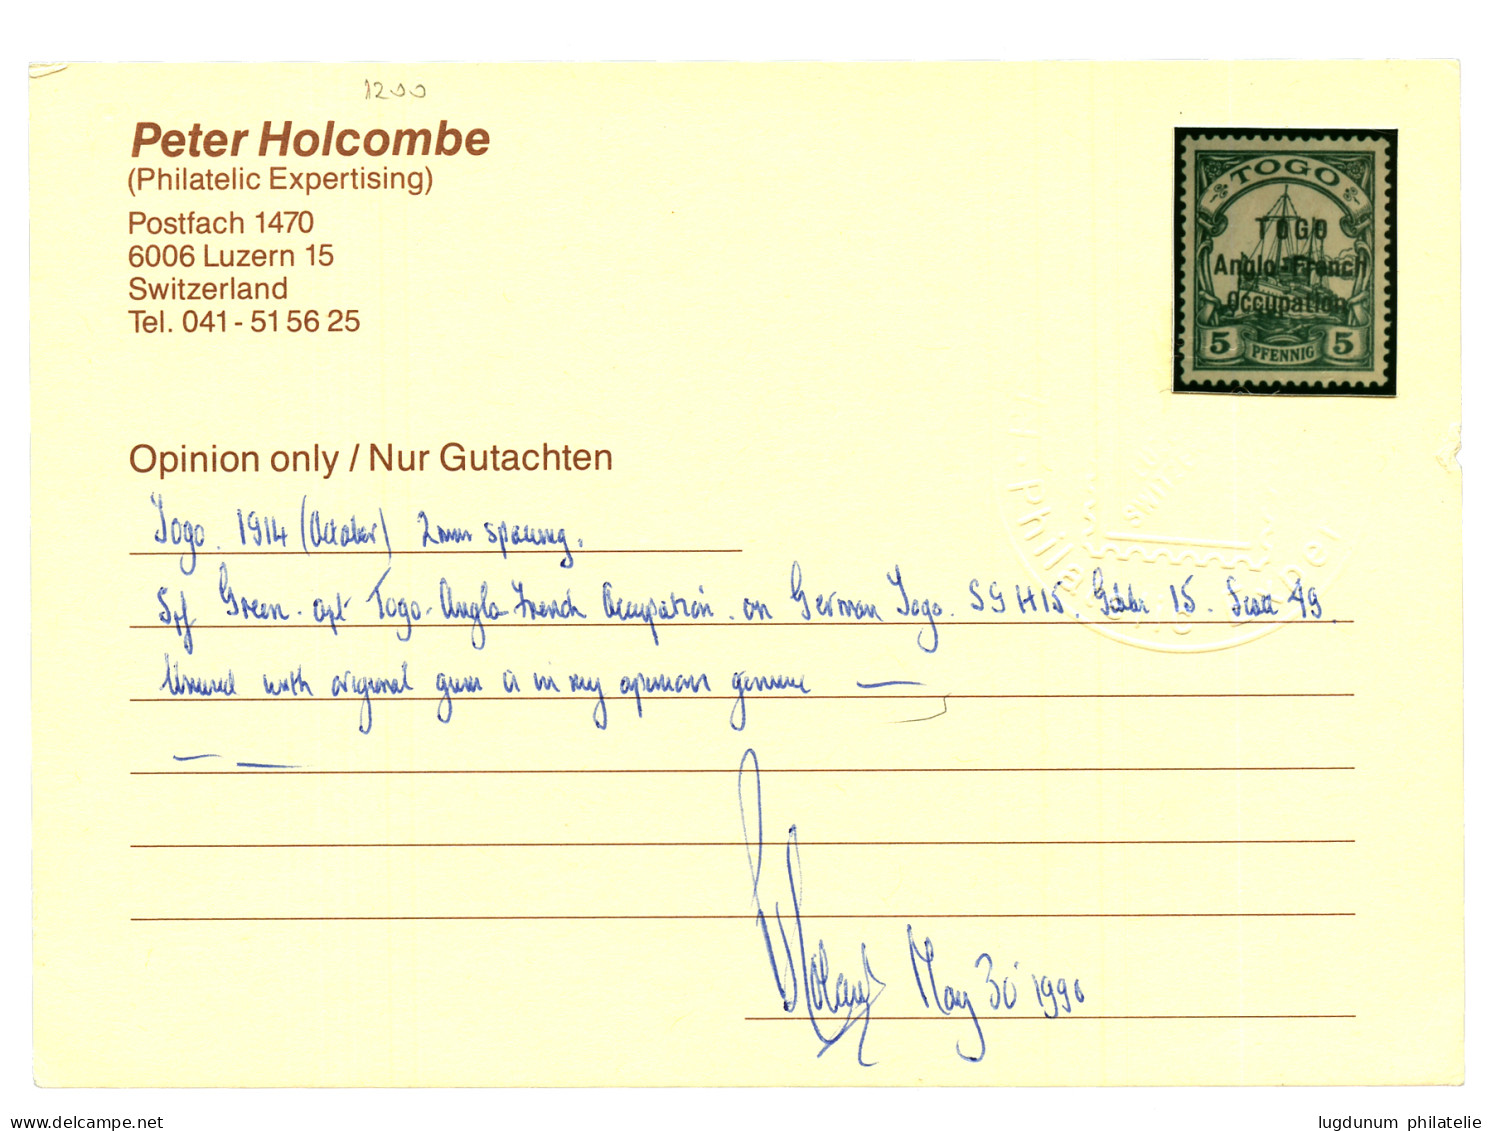 1200
Peter Holcombe
(Philatelic Expertising)
Postfach 1470
6006 Luzern 15
Switzerland
Tel. 041 - 51 56 25
TOGO
TOGO
Anglo-French
Occupation
5 PFENNIG 5
Opinion only / Nur Gutachten
Togo. 1914 (October) 2mm spacing.
5pf Green. opt Togo-Anglo-French Occupation. on German Togo. SG H15. Gibbs 15. Scott 49.
Unused with original gum is in my opinion genuine
May 30 1990
delcampe.net
lugdunum philatelie